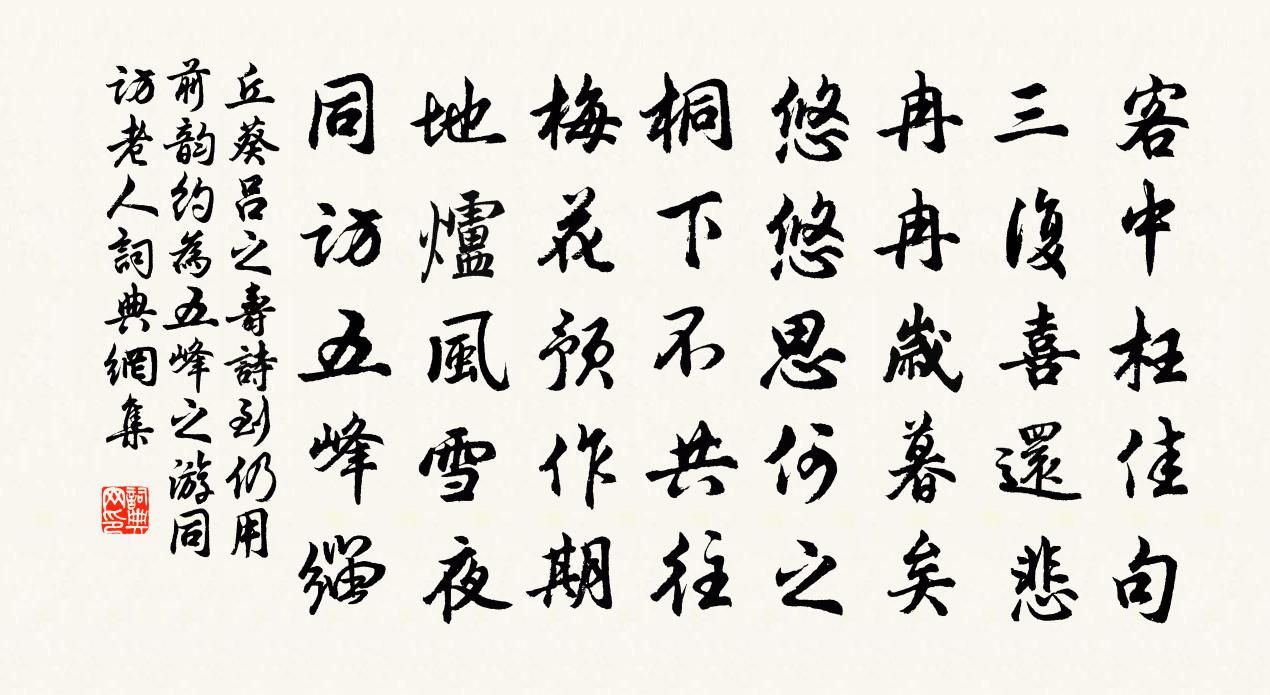 客中枉佳句
三復喜還悲
冉冉歲暮矣
悠悠思何之
桐下不共往
梅花預作期
地爐風雪夜
同訪五峰緇
丘葵呂之壽詩到仍用
前韵約為五峰之游同
訪老人詞典網集
詞典
网印